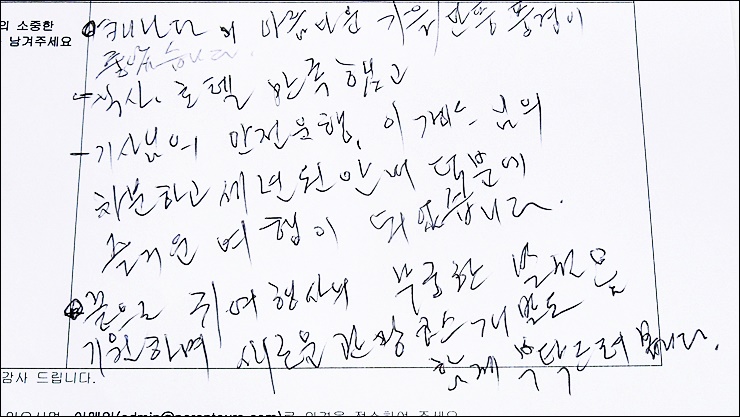 의 소중한
남겨주세요
캐나다의 아름다운 가을 단풍 풍경이
좋았습니다.
- 식사, 호텔 만족했고
- 기사님의 안전운행, 이 님의
차분하고 세련된 안내 덕분에
즐거운 여행이 되었습니다.
끝으로 귀 여행사의 무궁한 발전을
기원하며 새로운 관광코스 개발도
함께 부탁드려 봅니다.
감사 드립니다.
있으시면 이메일(admin@parantours.com)로 의견을 접수하여 주세요